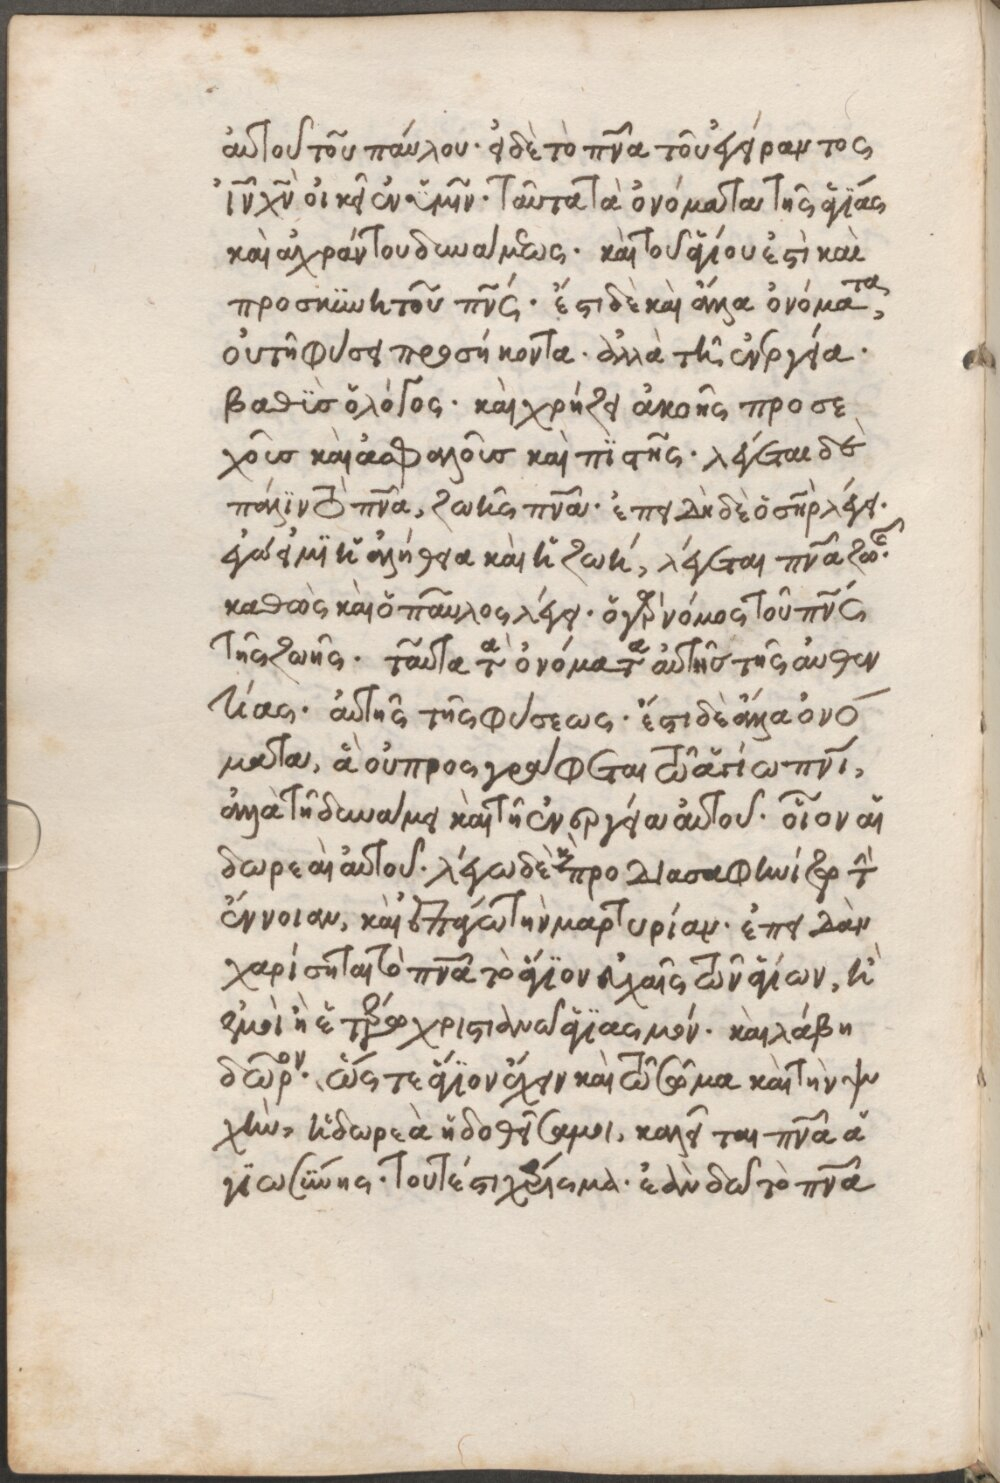 αὐτοῦ τοῦ παύλου· εἰ δὲ τὸ πνᾶ τοῦ ἐγείραντος
ἰῦν χῦν οἰκεῖ ἐν ὑμῖν· ταῦτα τὰ ὀνόματα τῆς ἁγίας
καὶ ἀχράντου δυνάμεως· καὶ τοῦ ἁγίου ἐστὶ καὶ
προσκϋνητοῦ πνς· ἔστι δὲ καὶ ἄλλα ὀνόματα,
οὐ τῇ φύσει προσήκοντα· ἀλλὰ τῆ ἐνεργεία·
βαθϊσ ὁ λόγος· καὶ χρήζει ἀκοῆς προσε
χοῦσ καὶ ἀσφαλοῦσ καὶ πϊστῆς· λέγεται δὲ
πάλϊν τὸ πνᾶ, ζωῆς πνᾶ· ἐπειδὴ δὲ ὁ σηρ λέγει·
ἐγώ εἰμϊ ἡ ἀλήθεια καὶ ἡ ζωή, λέγεται πνᾶ ζωῆς·
καθὼς καὶ ὁ παῦλος λέγει· ὁ γὰρ νόμος τοῦ πνς
τῆς ζωῆς· ταῦτα τὰ ὀνόματα αὐτῆσ τῆς αὐθεν
τίας· αὐτῆς τῆς φύσεως· ἔστι δὲ ἄλλα ὀνό
ματα, ἃ οὐ προσγράφεται τῶ ἁγίω πνϊ,
ἀλλὰ τῆ δυνάμει καὶ τῆ ἐνεργεία αὐτοῦ· οἷον αἱ
δωρεαὶ αὐτοῦ· λέγω δὲ καὶ προδιασαφηνίζω τὴν
ἔννοιαν, καὶ ἐπάγω τὴν μαρτυρίαν· ἐπειδὰν
χαρίσηται τὸ πνᾶ τὸ ἅγϊον εὐχαῖς τῶν ἁγίων, ἢ
ἐμοὶ ἢ ἑτέρω χριστιανῶ ἁγϊασμόν· καὶ λάβη
δῶρον· ὥς τε ἅγϊον ἔχειν καὶ τὸ σῶμα καὶ τὴν ψυ
χὴν, ἡ δωρεὰ ἡ δοθεῖσα μοι, καλεῖται πνᾶ ἁ
γϊωσϋνης· τουτέστι χάρισμα· ἐὰν δῶ τὸ πνᾶ